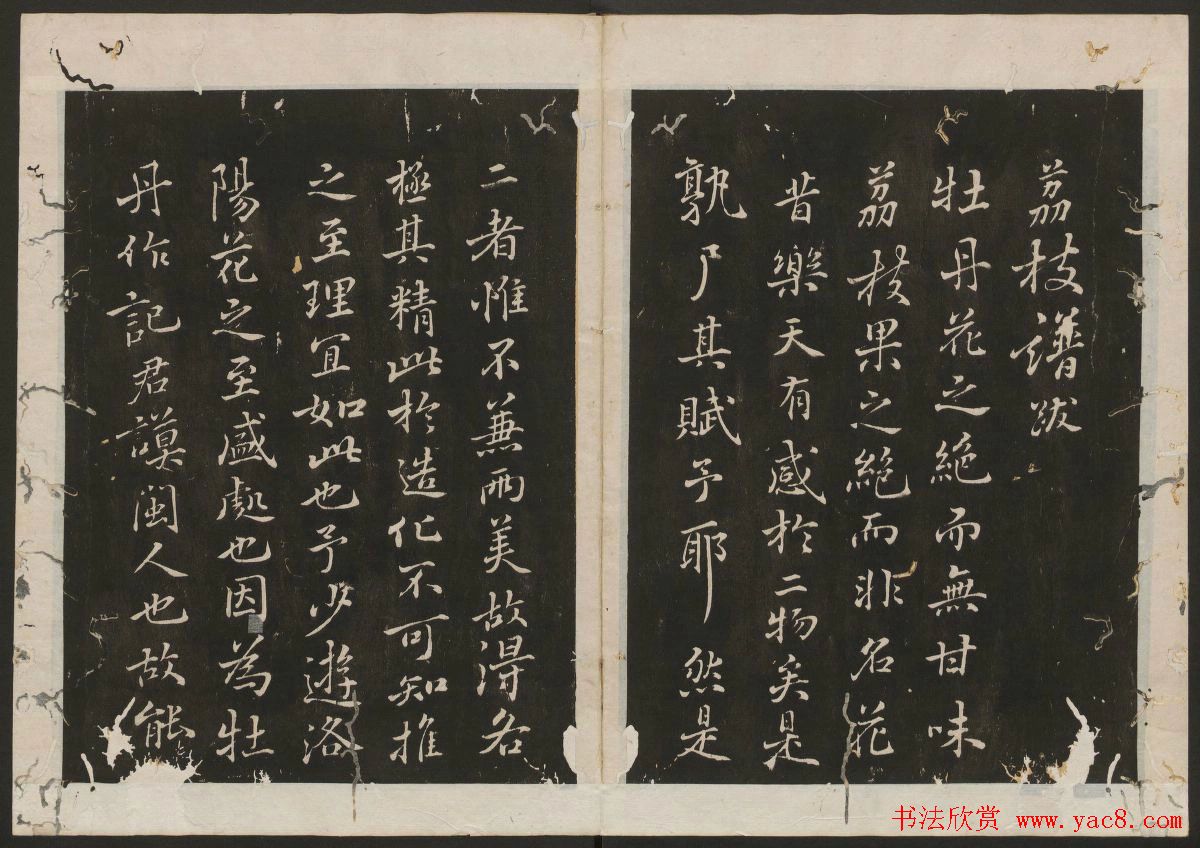 荔枝譜跋
牡丹花之絕而無甘味
荔枝果之絕而非名花
昔樂天有感於二物矣是
孰尸其賦予耶然是
二者惟不兼兩美故得各
極其精此於造化不可知推
之至理宜如此也予少遊洛
陽花之至盛處也因為牡
丹作記君謨閩人也故能
书法欣赏 www.yac8.com